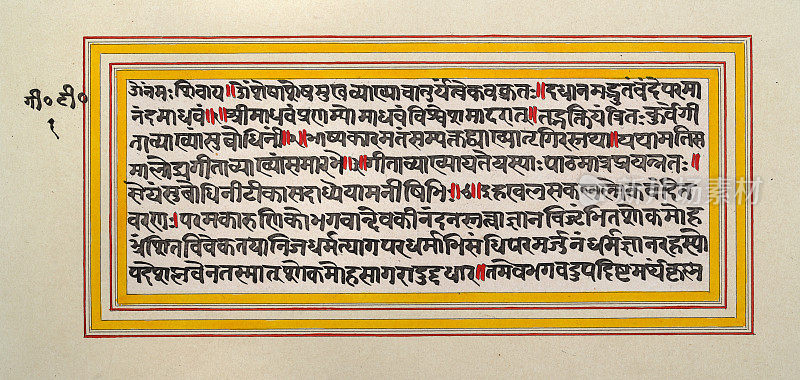 गी०टी०
१
ॐनमःशिवाय॥ॐशेषाशेषमुखव्याख्याचातुर्यंत्वेकवक्त्रतः॥दधानमद्भुतंवंदेपरमा
नंदमाधवं॥१॥श्रीमाधवंप्रणम्योमाधवंविश्वेशमादरात्॥तद्भक्तियंत्रितःकुर्वेगी
ताव्याख्यांसुबोधिनीं॥२॥भाष्यकारमतंसम्यक्तद्व्याख्यातृगिरस्तथा॥यथामतिस
मालोच्यगीताव्याख्यांसमारभे॥३॥गीताव्याख्यायतेयस्याःपाठमात्रप्रयत्नतः॥
सेयंसुबोधिनीटीकासदाध्येयामनीषिभिः॥४॥इहखलुसकललोकहिता
वतारः॥परमकारुणिकोभगवान्देवकीनंदनस्तत्वाज्ञानविजृंभितशोकमोह
भ्रंशितविवेकतयानिजधर्मत्यागपरधर्माभिसंधिपरमर्जुनंधर्मज्ञानरहस्यो
पदेशप्लवेनतस्मात्शोकमोहसागरादुद्दधार॥तमेवभगवदुपदिष्टमर्थंकृष्ण